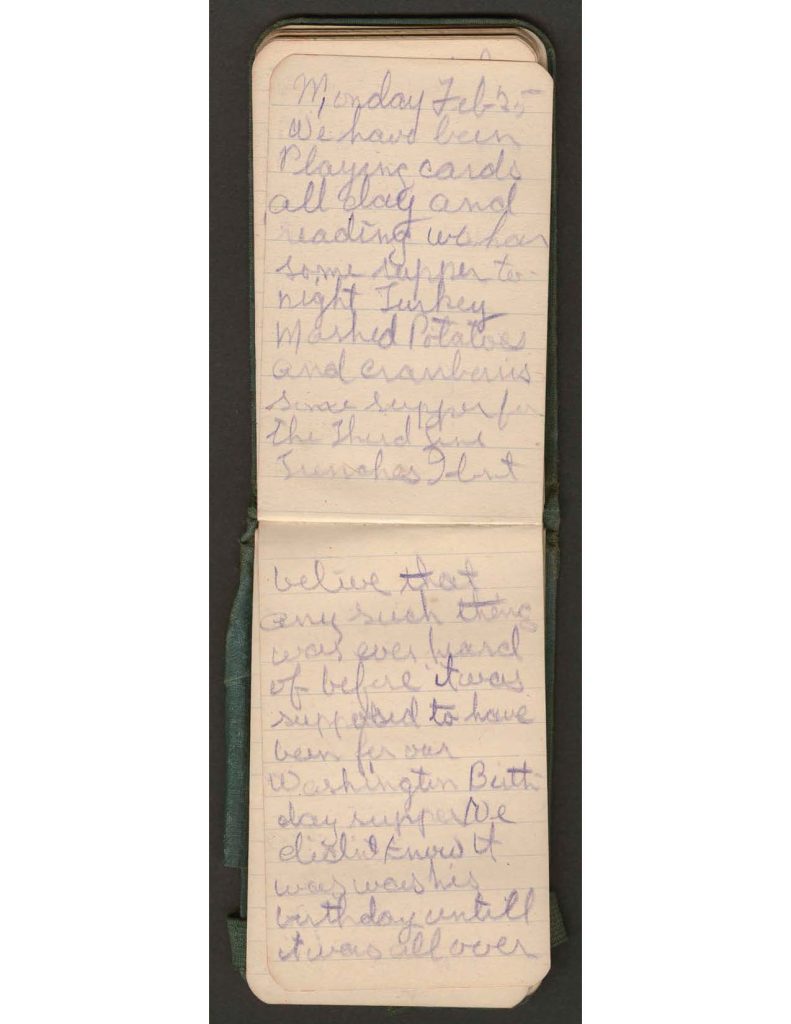 Monday Feb 25
We have been
Playing cards
all day and
reading we hav
some supper to-
night Turkey
Mashed Potatoes
and cranberris
some supper for
the Third Line
Trenches I dnt
belive that
any such thing
was ever heard
of before it was
supposed to have
been for our
Washington Birth
day supper We
didnt know it
was was his
birthday untill
it was all over